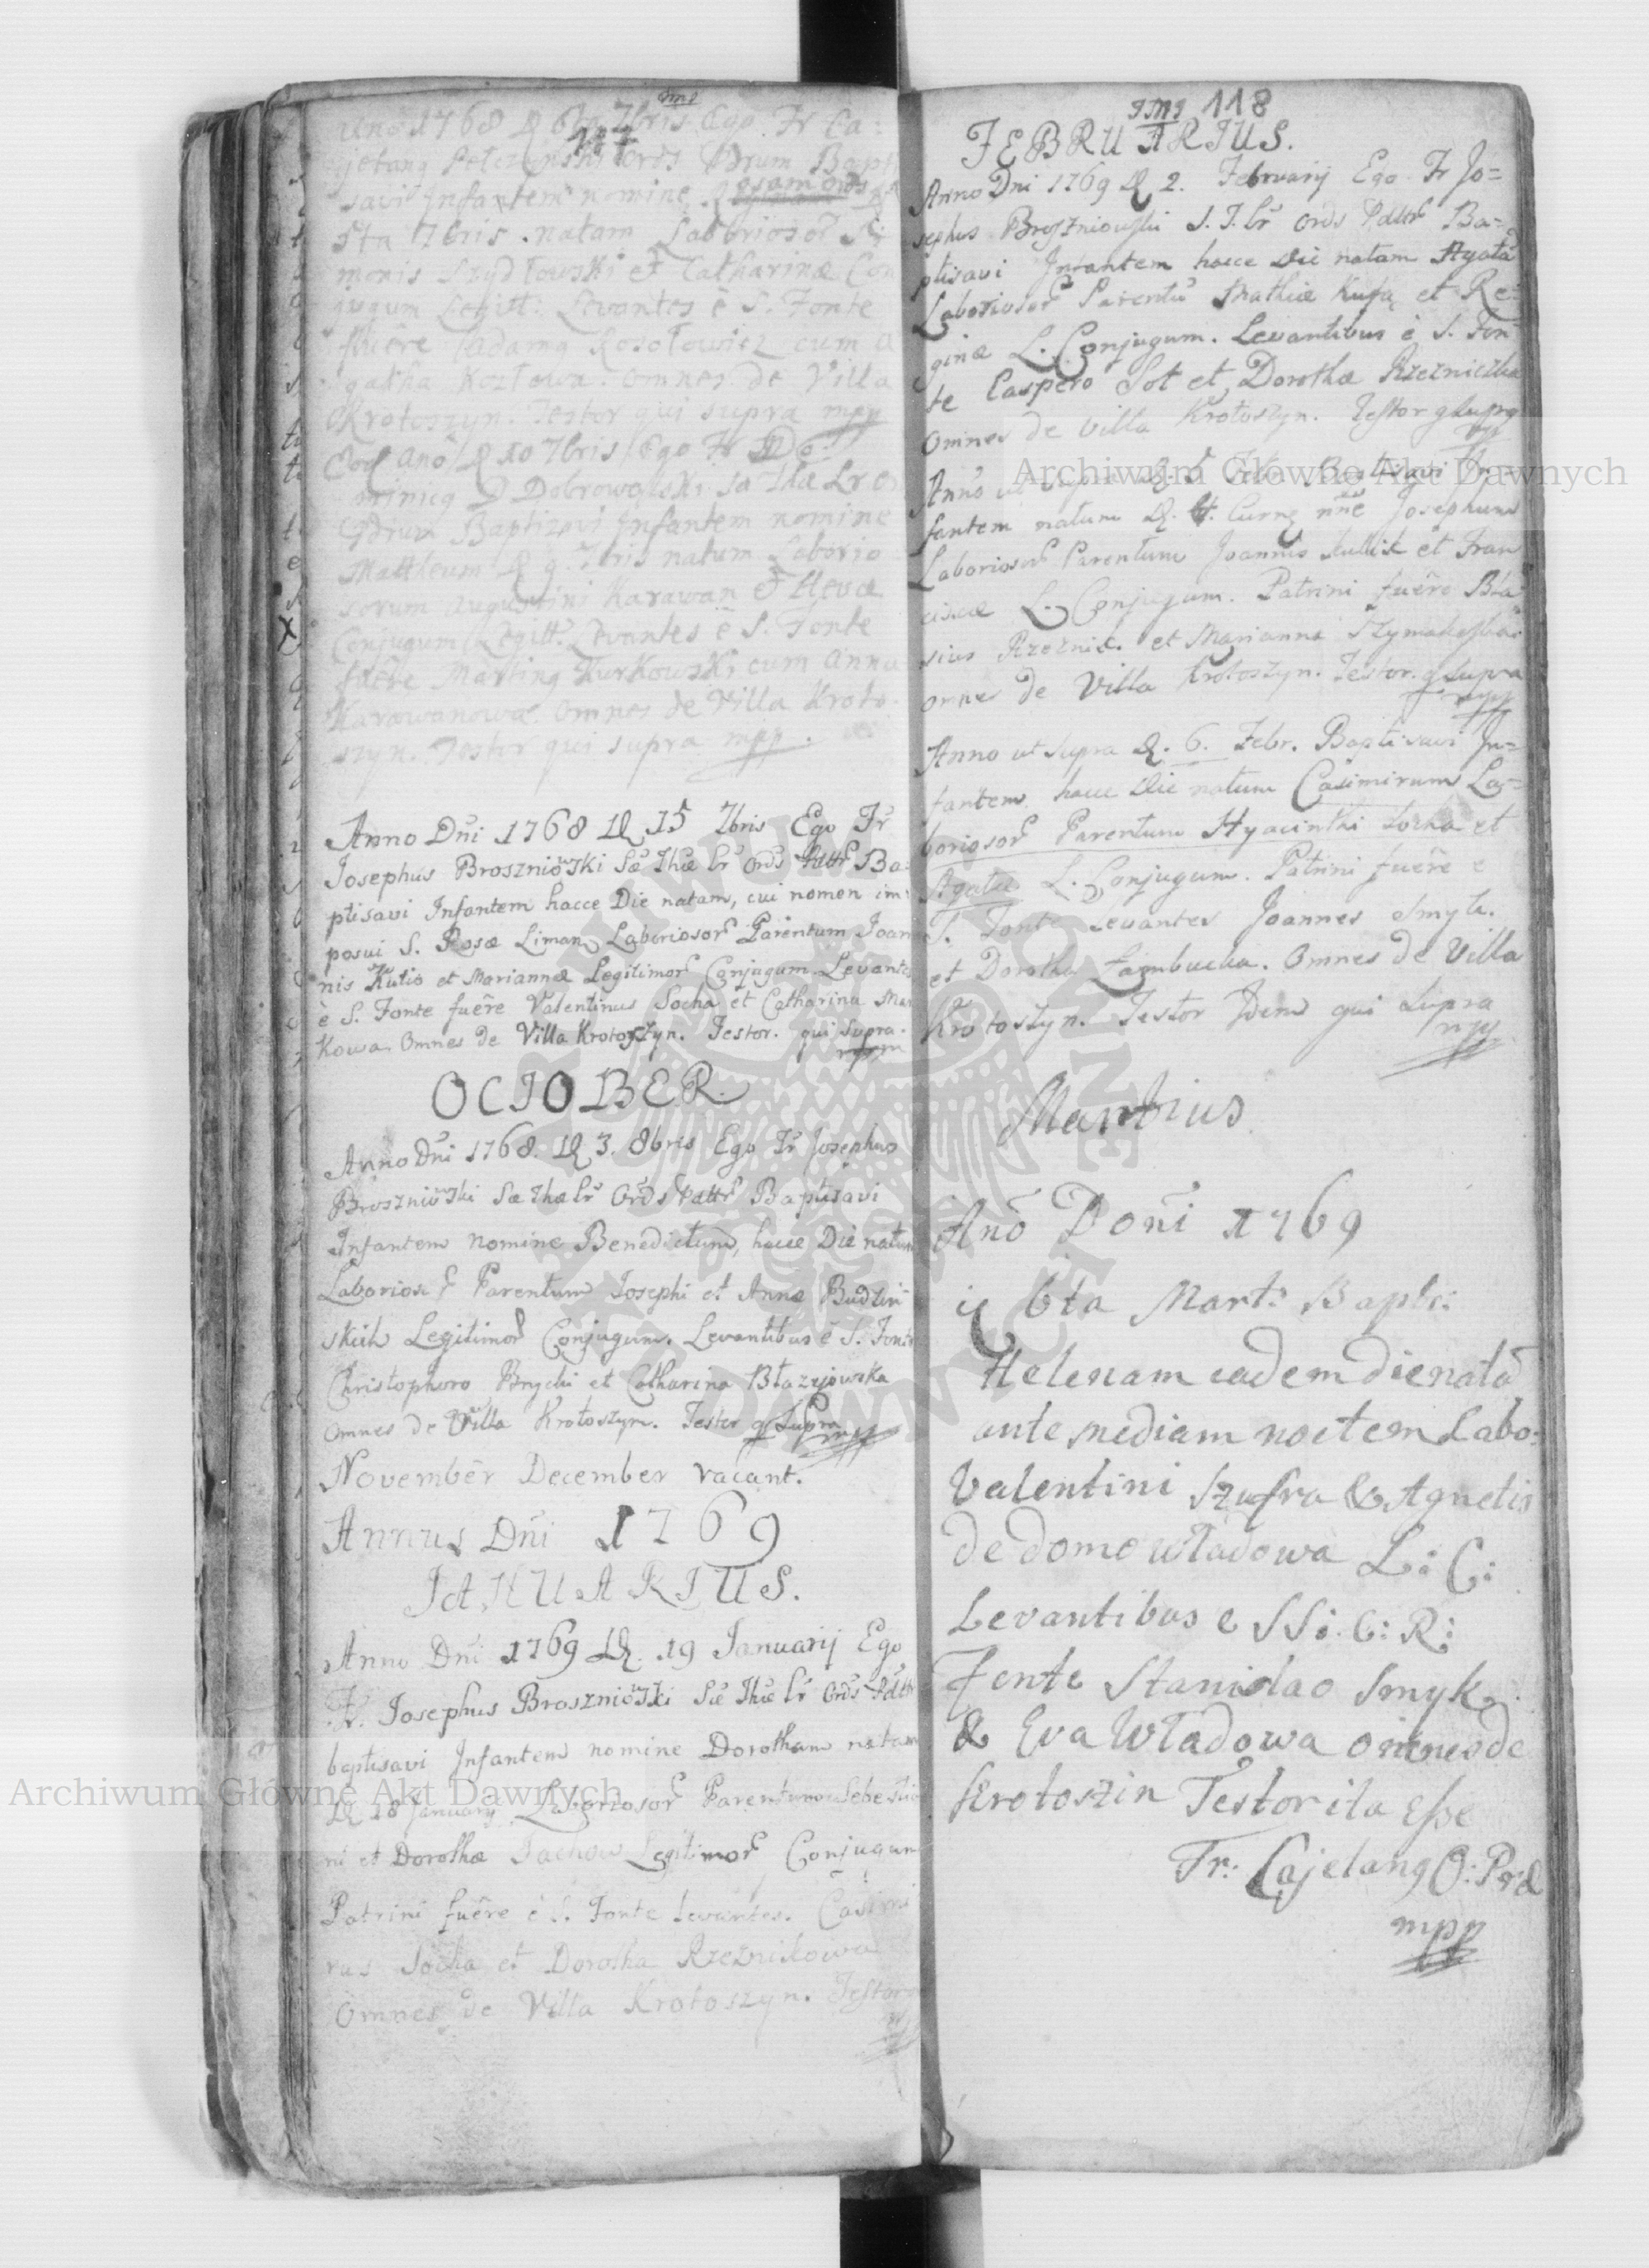 117
Anno 1768 D 6ta 7bris Ego Fr Ca:
jetang Pelczynski Ords Pdrum Bapti
savi Infantem nomine
5ta 7bris natam Laboriosor Si
monis Szydłowski et Catharinæ Con
jugum Legitt: Levantes è S. Fonte
fuêre Adamg Kosołowicz cum A
gatha Kozłowa. omnes de Villa
Krotoszyn. Testor qui supra mpp
Eod Ano D 10 7bris Ego Fr Do
minicg Dobrowolski Sa Thæ Lr O
Pdrum Baptizavi Infantem nomine
Mattheum D 9. 7bris natum Laborio
sorum Augustini Karawan & Hevæ
Conjugum Legitt. Levantes è S. Fonte
fuêre Marting Turkowski cum Anna
Karawanowa. omnes de Villa Kroto-
szyn. Testor qui supra mpp.
Anno Dni 1768 D 15 7bris Ego Fr
Josephus Broszniowski Sæ Thæ Lr Ords Pattr Ba-
ptisavi Infantem hacce Die natam, cui nomen im:
posui S. Rosæ Liman Laboriosor Parentum Joan
nis Kutio et Mariannæ Legitimor Conjugum Levantes
è S. Fonte fuêre Valentinus Socha et Catharina Mar
kowa Omnes de Villa Krotoszyn. Testor. qui Supra.
mppm
OCTOBER
Anno Dni 1768. D 3. 8bris Ego Fr Josephus
Broszniowski Sæ Thæ Lr Ords Pattr Baptisavi
Infantem nomine Benedictum, hacce Die natum
Laboriosor Parentum Josephi et Annæ Budzin
skich Legitimor Conjugum. Levantibus è S. Fonte
Christophoro Brychi et Catharina Błazejowska
omnes de Villa Krotoszyn. Testor q Supra
mpp
November December vacant.
Annus Dni 1769
JANUARIUS.
Anno Dni 1769 D. 19 Januarij Ego
Fr. Josephus Broszniowski Sæ Thæ Lr Ords Pattr
baptisavi Infantem nomine Dorotham natam
D 18 January Laboriosor Parentum Sebestia
ni et Dorothæ Sachow Legitimor Conjugum
Patrini fuêre è S. Fonte levantes. Casimi
rus Socha et Dorotha Rzeznikowa
Omnes de Villa Krotoszyn. Testor
118
FEBRUARIUS.
Anno Dni 1769 D 2. Februarij Ego Fr Jo=
sephus Broszniowski S. T. Lr Ords Pattr Ba=
ptisavi Infantem hacce Die natam Agatā
Laboriosor Parentū Mathiæ Kufą et Re=
ginæ L. Conjugum. Levantibus è S. Fon
te Caspero Sot et Dorothæ Rzezniczka
omnes de Villa Krotoszyn. Testor q Supra
Anno ut supra D. 5 Febr. Baptisavi In=
fantem natum D. 4. Curng nñe Josephum
Laboriosor Parentum Joannis Kulik et Fran
ciscæ L. Conjugum. Patrini fuêre Bła
sius Rzeznik. et Marianna Szymakoska
omnes de Villa Krotoszyn. Testor q Supra
mpp
Anno ut supra D. 6. Febr. Baptisavi In=
fantem hacce Die natum Casimirum La=
boriosor Parentum Hyacinthi Socha et
Agatæ L. Conjugum. Patrini fuêre e
S. Fonte Levantes Joannes Smyk.
et Dorotha Zambucka. Omnes de Villa
Krotoszyn. Testor Idem qui supra
mpp
Martius
Anō Doñi 1769
6ta Mart: Bapti:
Helenam eadem die natā
ante mediam noctem Labo:
Valentini Szufra & Agnetis
de domo Władowa L: C:
Levantibus e SSi. C: R:
Fonte Stanislao Smyk
& Eva Władowa omnes de
Krotoszin Testor ita Esse
Fr: Cajetang O: Prd
mpp
Archiwum Główne Akt Dawnych
Archiwum Główne Akt Dawnych
ARCHIWUM GŁÓWNE AKT DAWNYCH